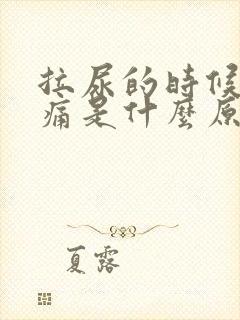 拉尿的時候
痛是什麼原
夏露